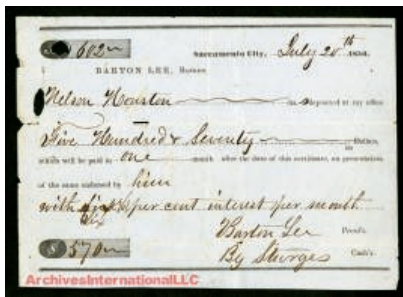 $ 602
Sacramento City, July 20th 1850.
BARTON LEE, Banker.
Nelson Houston has deposited at my office
Five Hundred & Seventy Dollars,
which will be paid in one month after the date of this certificate, on presentation
of the same endorsed by him
with six per cent interest per month
Six
Barton Lee Prest.
$ 570 By Sturges Cash'r.
ArchivesInternationalLLC